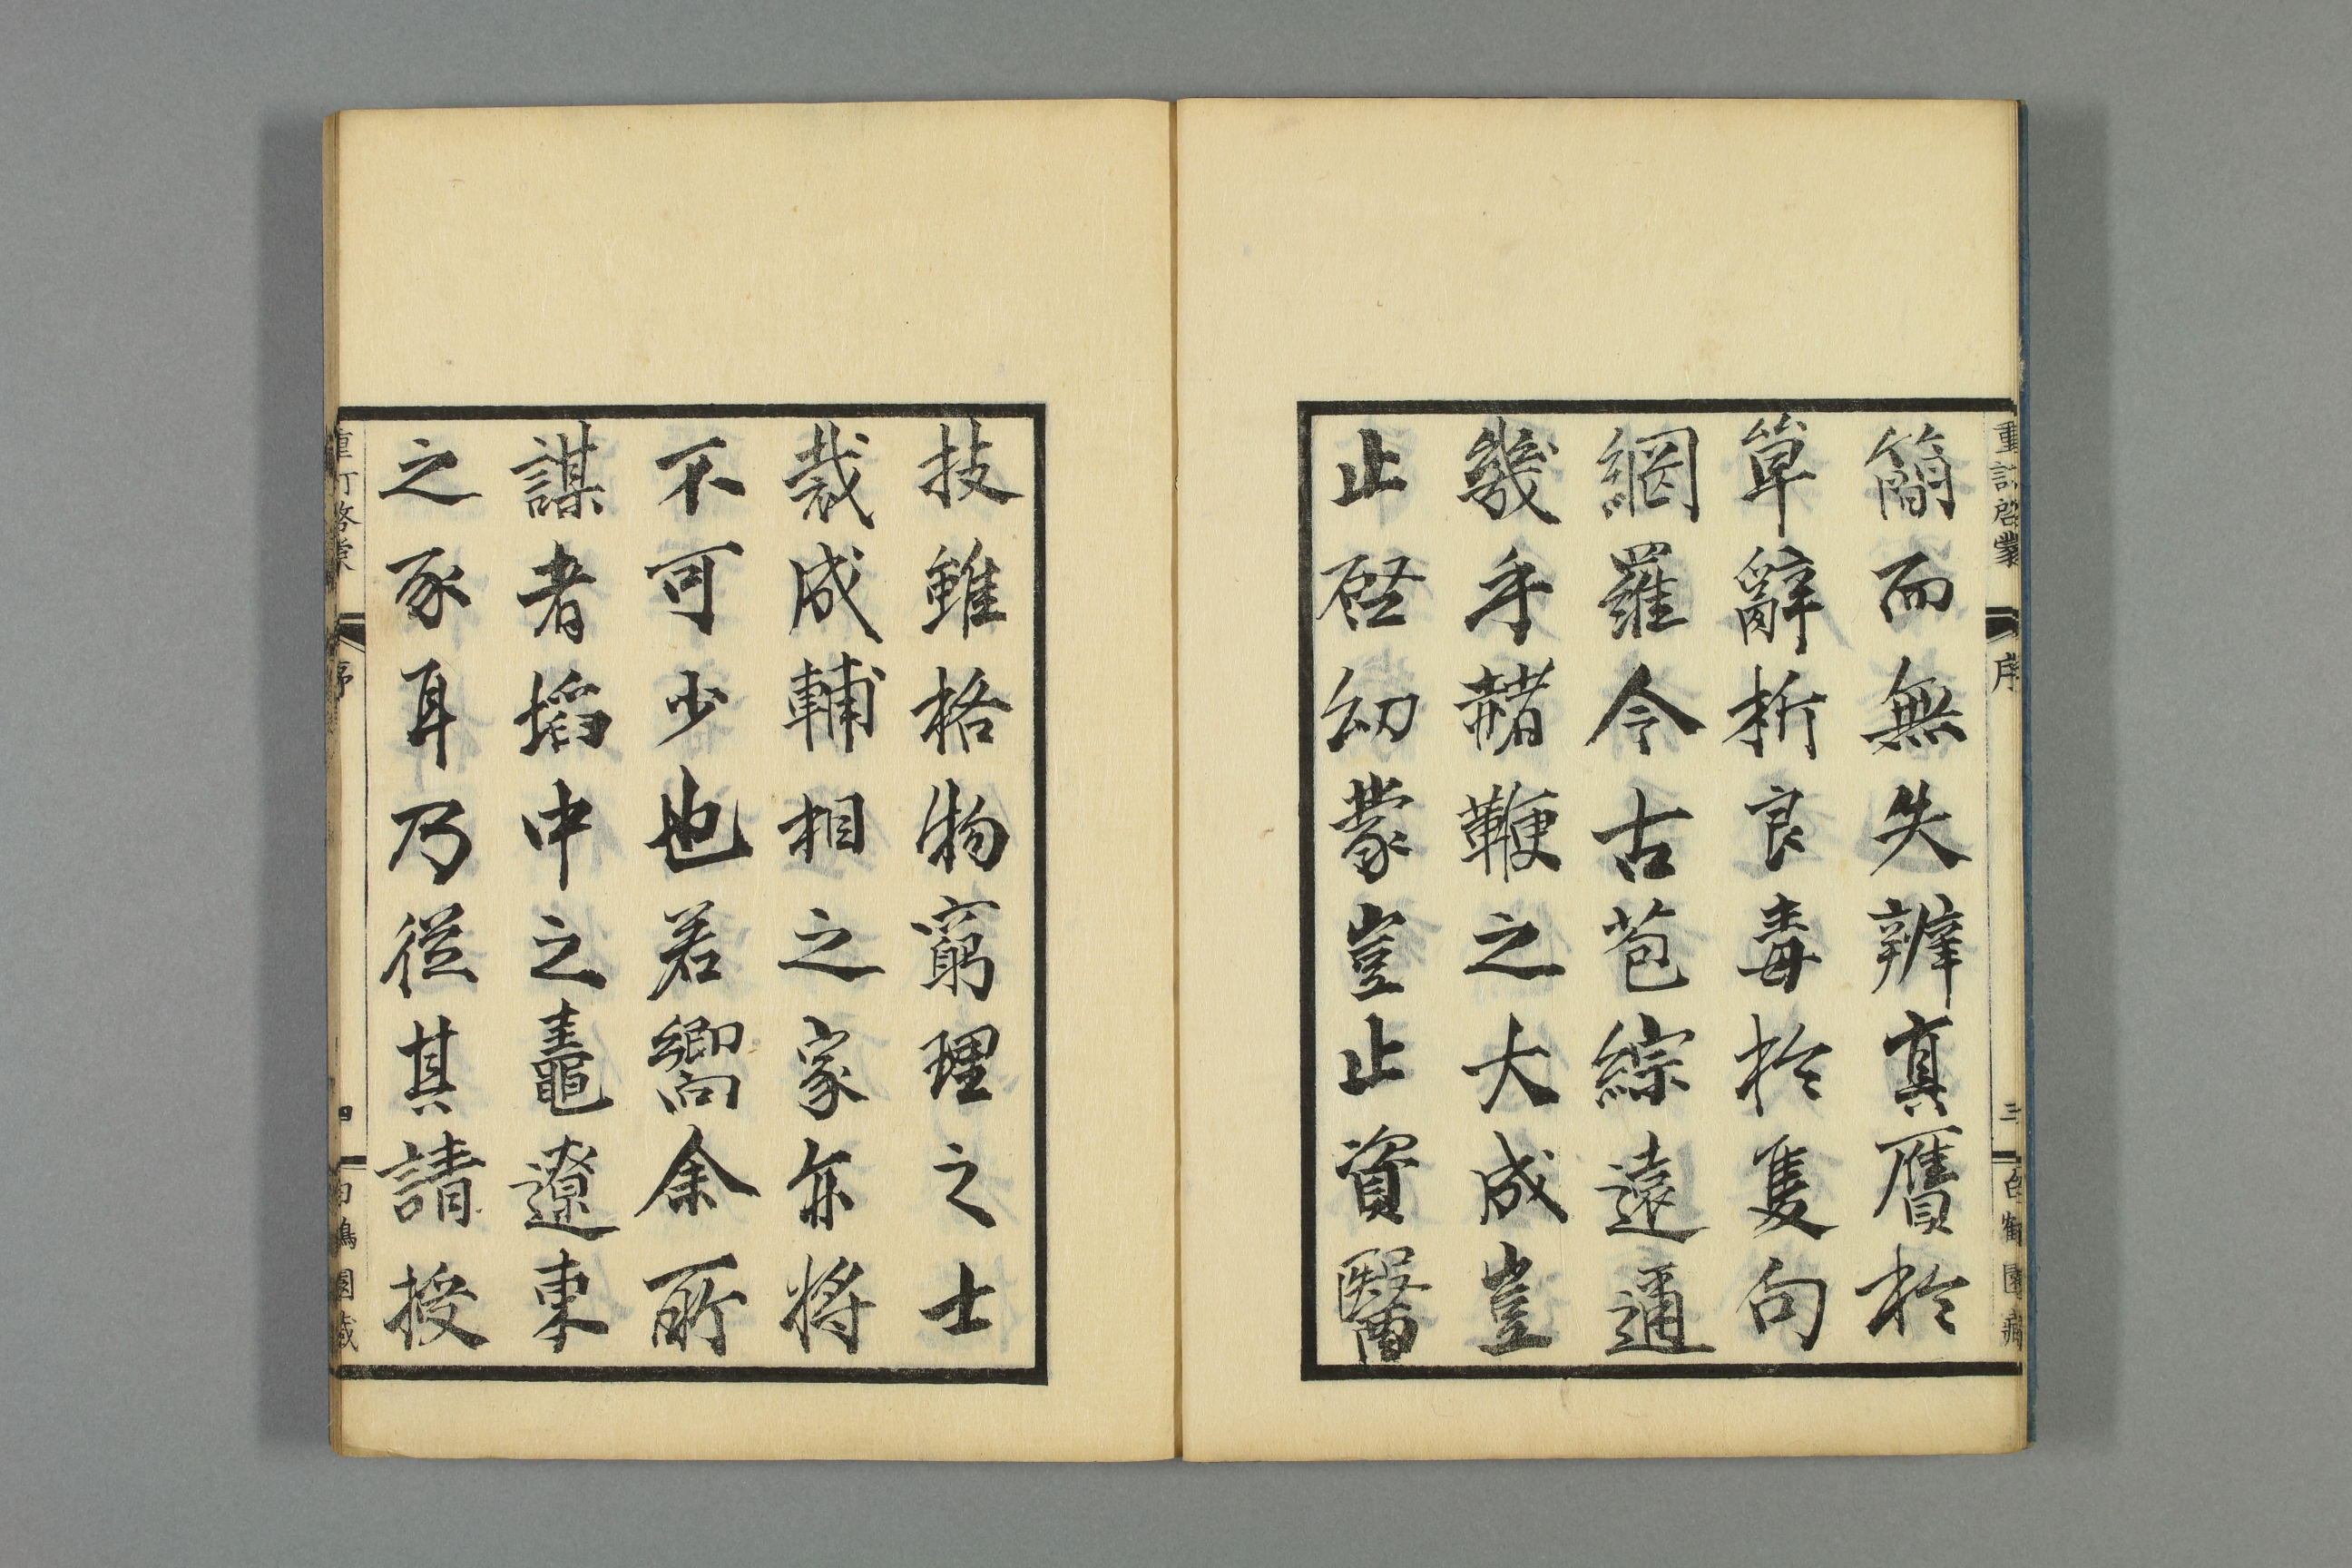 重訂啓蒙 序 三 白鶴園藏
簡而無失辨真贋於
箪辭析良毒於隻句
網羅今古苞綜遠邇
幾乎赭鞭之大成豈
止啓幼蒙豈止資醫
技雖格物窮理之士
裁成輔相之家亦將
不可少也若嚮余所
謀者搯中之鼃遼東
之豕耳乃從其請授
重訂啓蒙 序 四 白鶴園藏